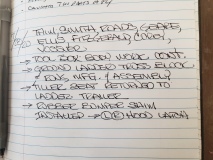 PAUL SMITH, ROADS, GEORGE,
ELLIS, FITZGERALD, COREY,
→ TOOL BOX BODY WORK CONT.
→ GROUND LADDER TRUSS BLOCK
& ENDS, MFG. & ASSEMBLY
→ TILLER SEAT RETURNED TO
LADDER TRAILER
→ RUBBER BUMPER SHIM
INSTALLED → L/R HOOD LATCH